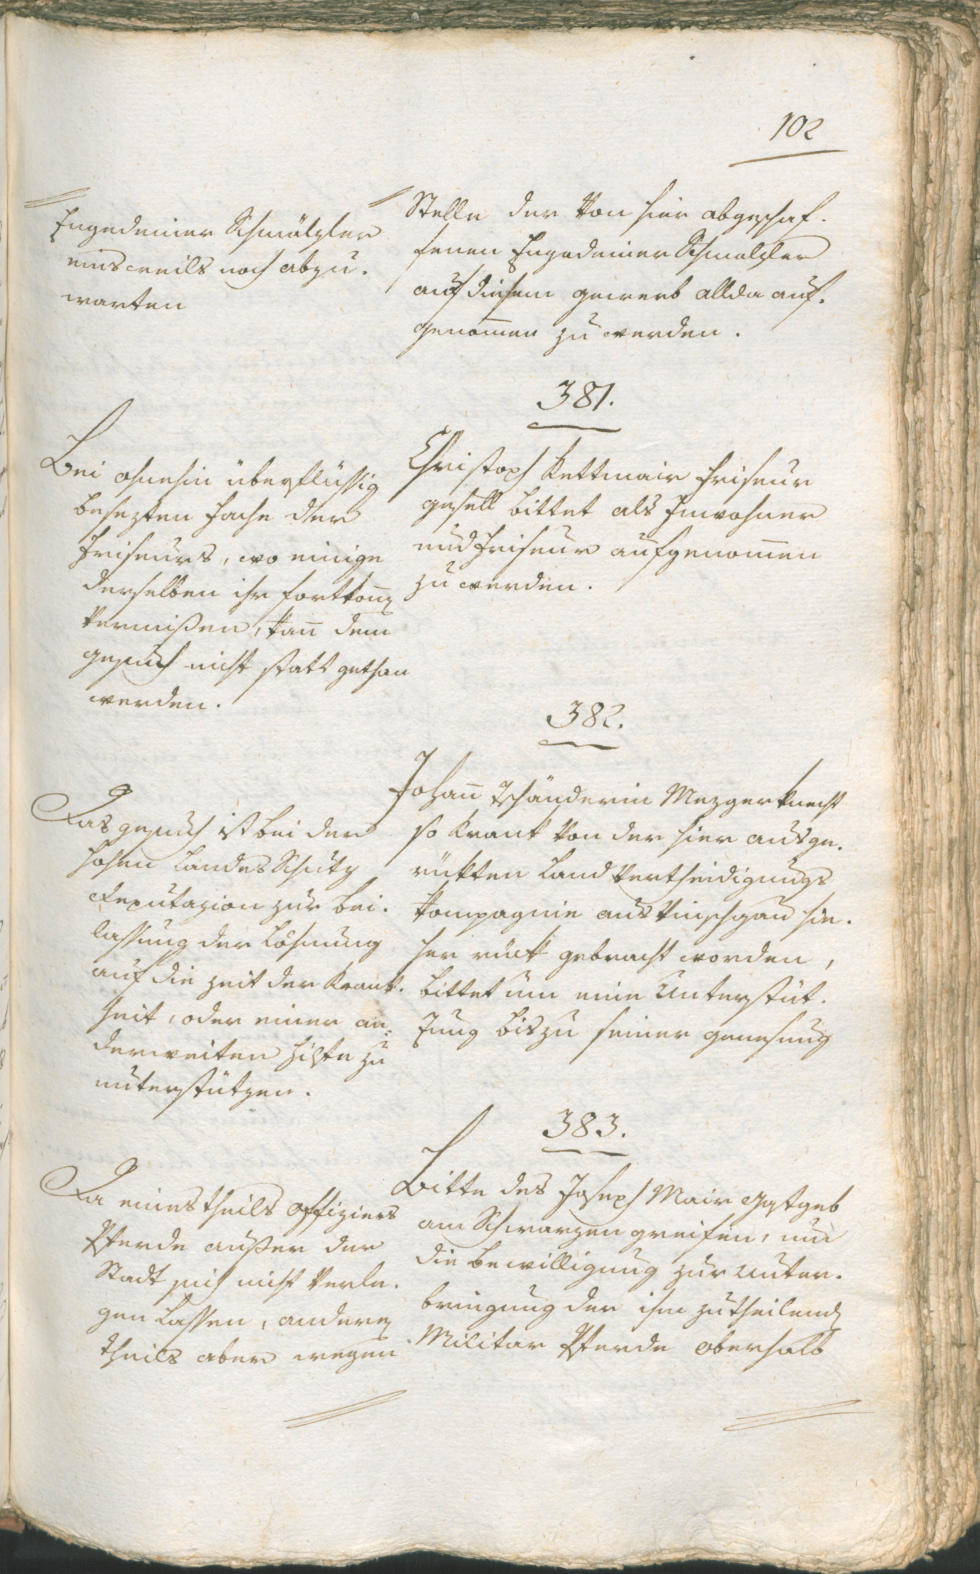 102
Engedeiner Schmälzler
einsweils noch abzu-
warten
Stelle der von hier abgeschaf-
fenen Engedeiner Schmalzler
auf diesem gewerb allda auf-
genom̄en zu werden.
381.
Bei ohnehin überflüssig
besezten fache der
friseurs, wo einige
derselben ihr fortkom̄en
vermißen, kan̄ dem
gesuch nicht statt gethan
werden.
Christoph Kettmair friseur
gesell bittet als Inwohner
und friseur aufgenom̄en
zu werden.
382.
Das gesuch ist bei der
hohen Landes Schutz
Deputazion zur bei-
lassung der Löhnung
auf die zeit der Krank-
heit, oder einer an-
derweiten hilfe zu
unterstützen.
Johan̄ Tschänderin Mezgerknecht
so krank von der hier ausge-
rükten Landvertheidigungs
kompagnie aus Vinschgau hie-
her rück gebracht worden,
bittet um eine Unterstüt-
zung bis zu seiner genesung
383.
Da eines theils offiziers
Pferde außer der
Stadt sich nicht verle-
gen lassen, anderen
theils aber wegen
Bitte des Joseph Mair Gastgeb
am Schwarzen greifen, um
die bewilligung zur unter-
bringung der ihm zutheilenden
Militar Pferde oberhalb